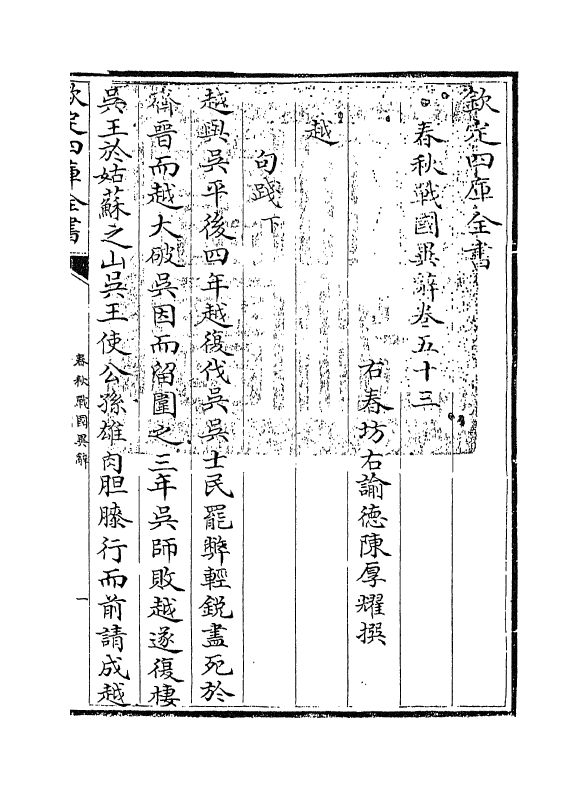 欽定四庫全書
春秋戰國異辭卷五十三
右春坊右諭德陳厚耀撰
越
句踐下
越與吳平後四年越復伐吳吳士民罷弊輕銳盡死於
齊晉而越大破吳因而留圍之三年吳師敗越遂復棲
吳王於姑蘇之山吳王使公孫雄肉胆膝行而前請成越
欽定四庫全書
春秋戰國異辭
一